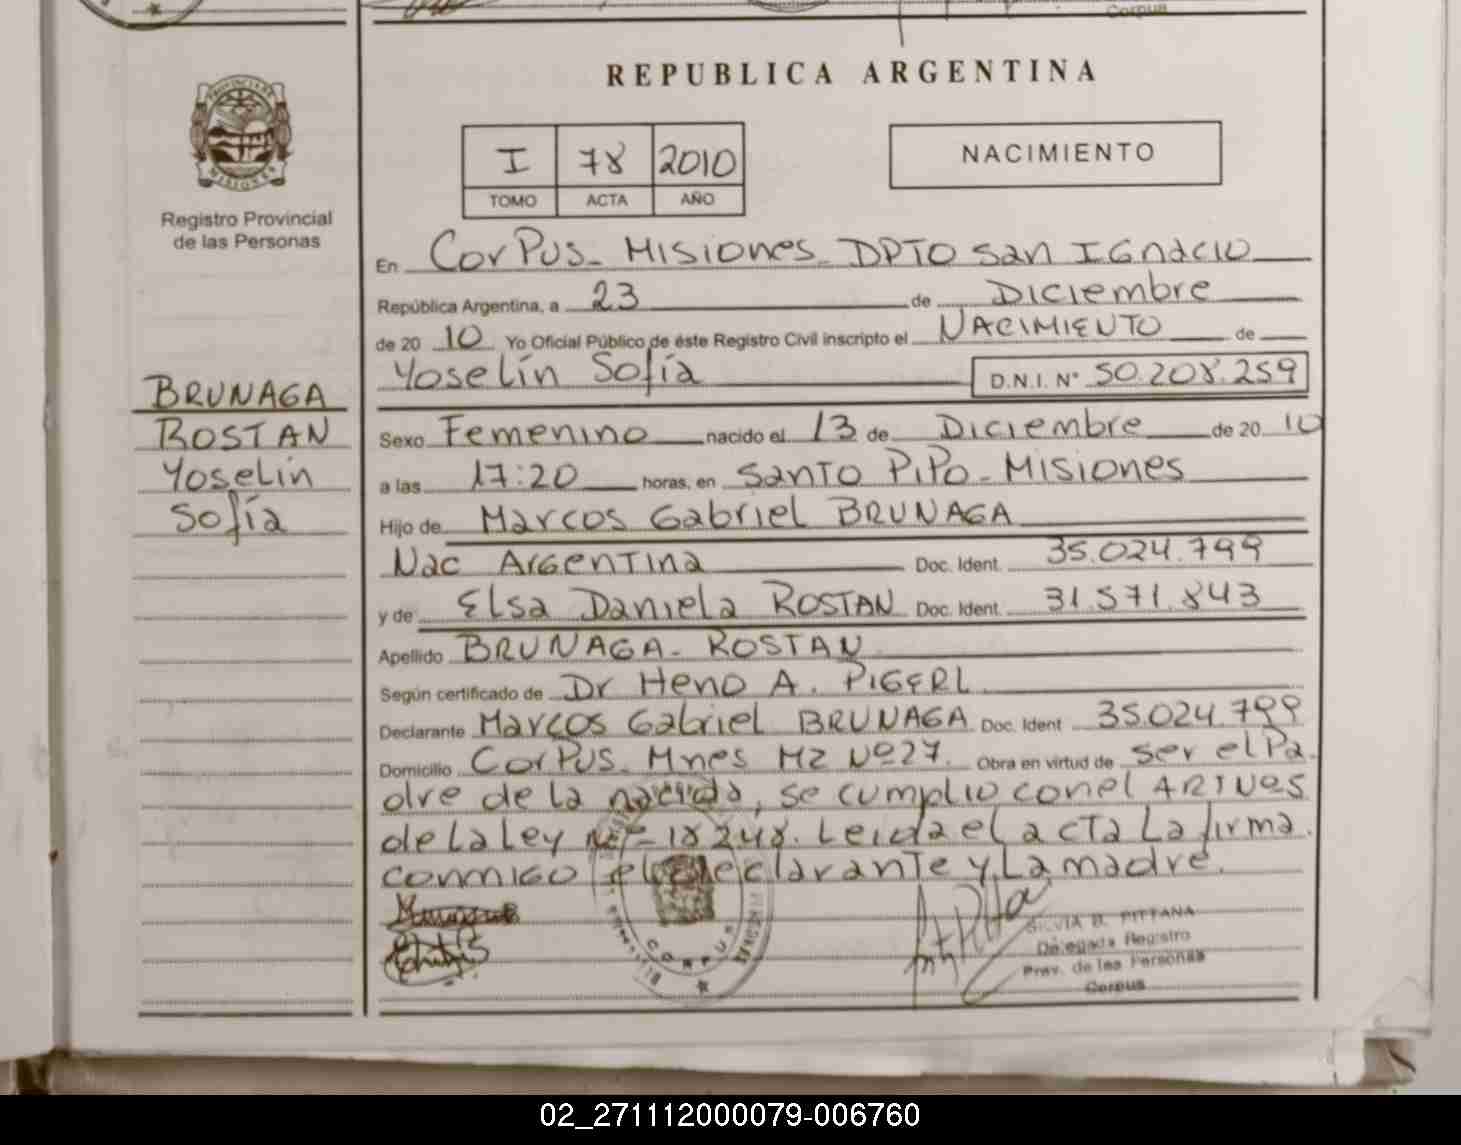 Corpus
REPUBLICA ARGENTINA
PROVINCIA DE
MISIONES
Registro Provincial
de las Personas
I 78 2010
TOMO ACTA AÑO
NACIMIENTO
En Corpus - Misiones - DPTO San Ignacio
República Argentina, a 23 de Diciembre
de 20 10 Yo Oficial Público de éste Registro Civil inscripto el NACIMIENTO de
Yoselín Sofía D.N.I. N° 50.208.259
BRUNAGA
ROSTAN
Yoselín
Sofía
Sexo Femenino nacido el 13 de Diciembre de 20 10
a las 17:20 horas, en Santo Pipo - Misiones
Hijo de Marcos Gabriel BRUNAGA
Nac Argentina Doc. Ident. 35.024.799
y de Elsa Daniela ROSTAN Doc. Ident. 31.571.843
Apellido BRUNAGA - ROSTAN
Según certificado de Dr Heno A. PIGERL
Declarante Marcos Gabriel BRUNAGA Doc. Ident 35.024.799
Domicilio Corpus - Mnes Mz Nº 27. Obra en virtud de ser el Pa
dre de la nacida, se cumplio con el
de la Ley 18248. Leida el acta La firma
conmigo el declarante y La madre.
CORPUS
SILVIA B. PITTANA
Delegada Registro
Prov. de las Personas
Corpus
02_271112000079-006760